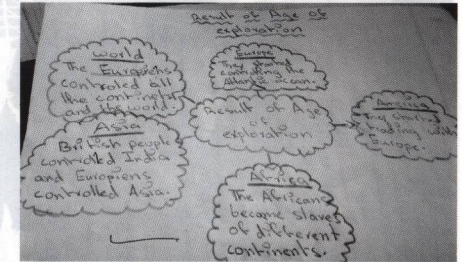 Result of Age of
exploration
World
The Europiens
controled all
the continents
and the world.
Europe
They started
controling the
Atlantic Ocean.
Result of Age
of
exploration
America
They started
trading with
Europe.
Asia
British people
controled India
and Europiens
controlled Asia.
Africa
The Africans
became slaves
of different
continents.